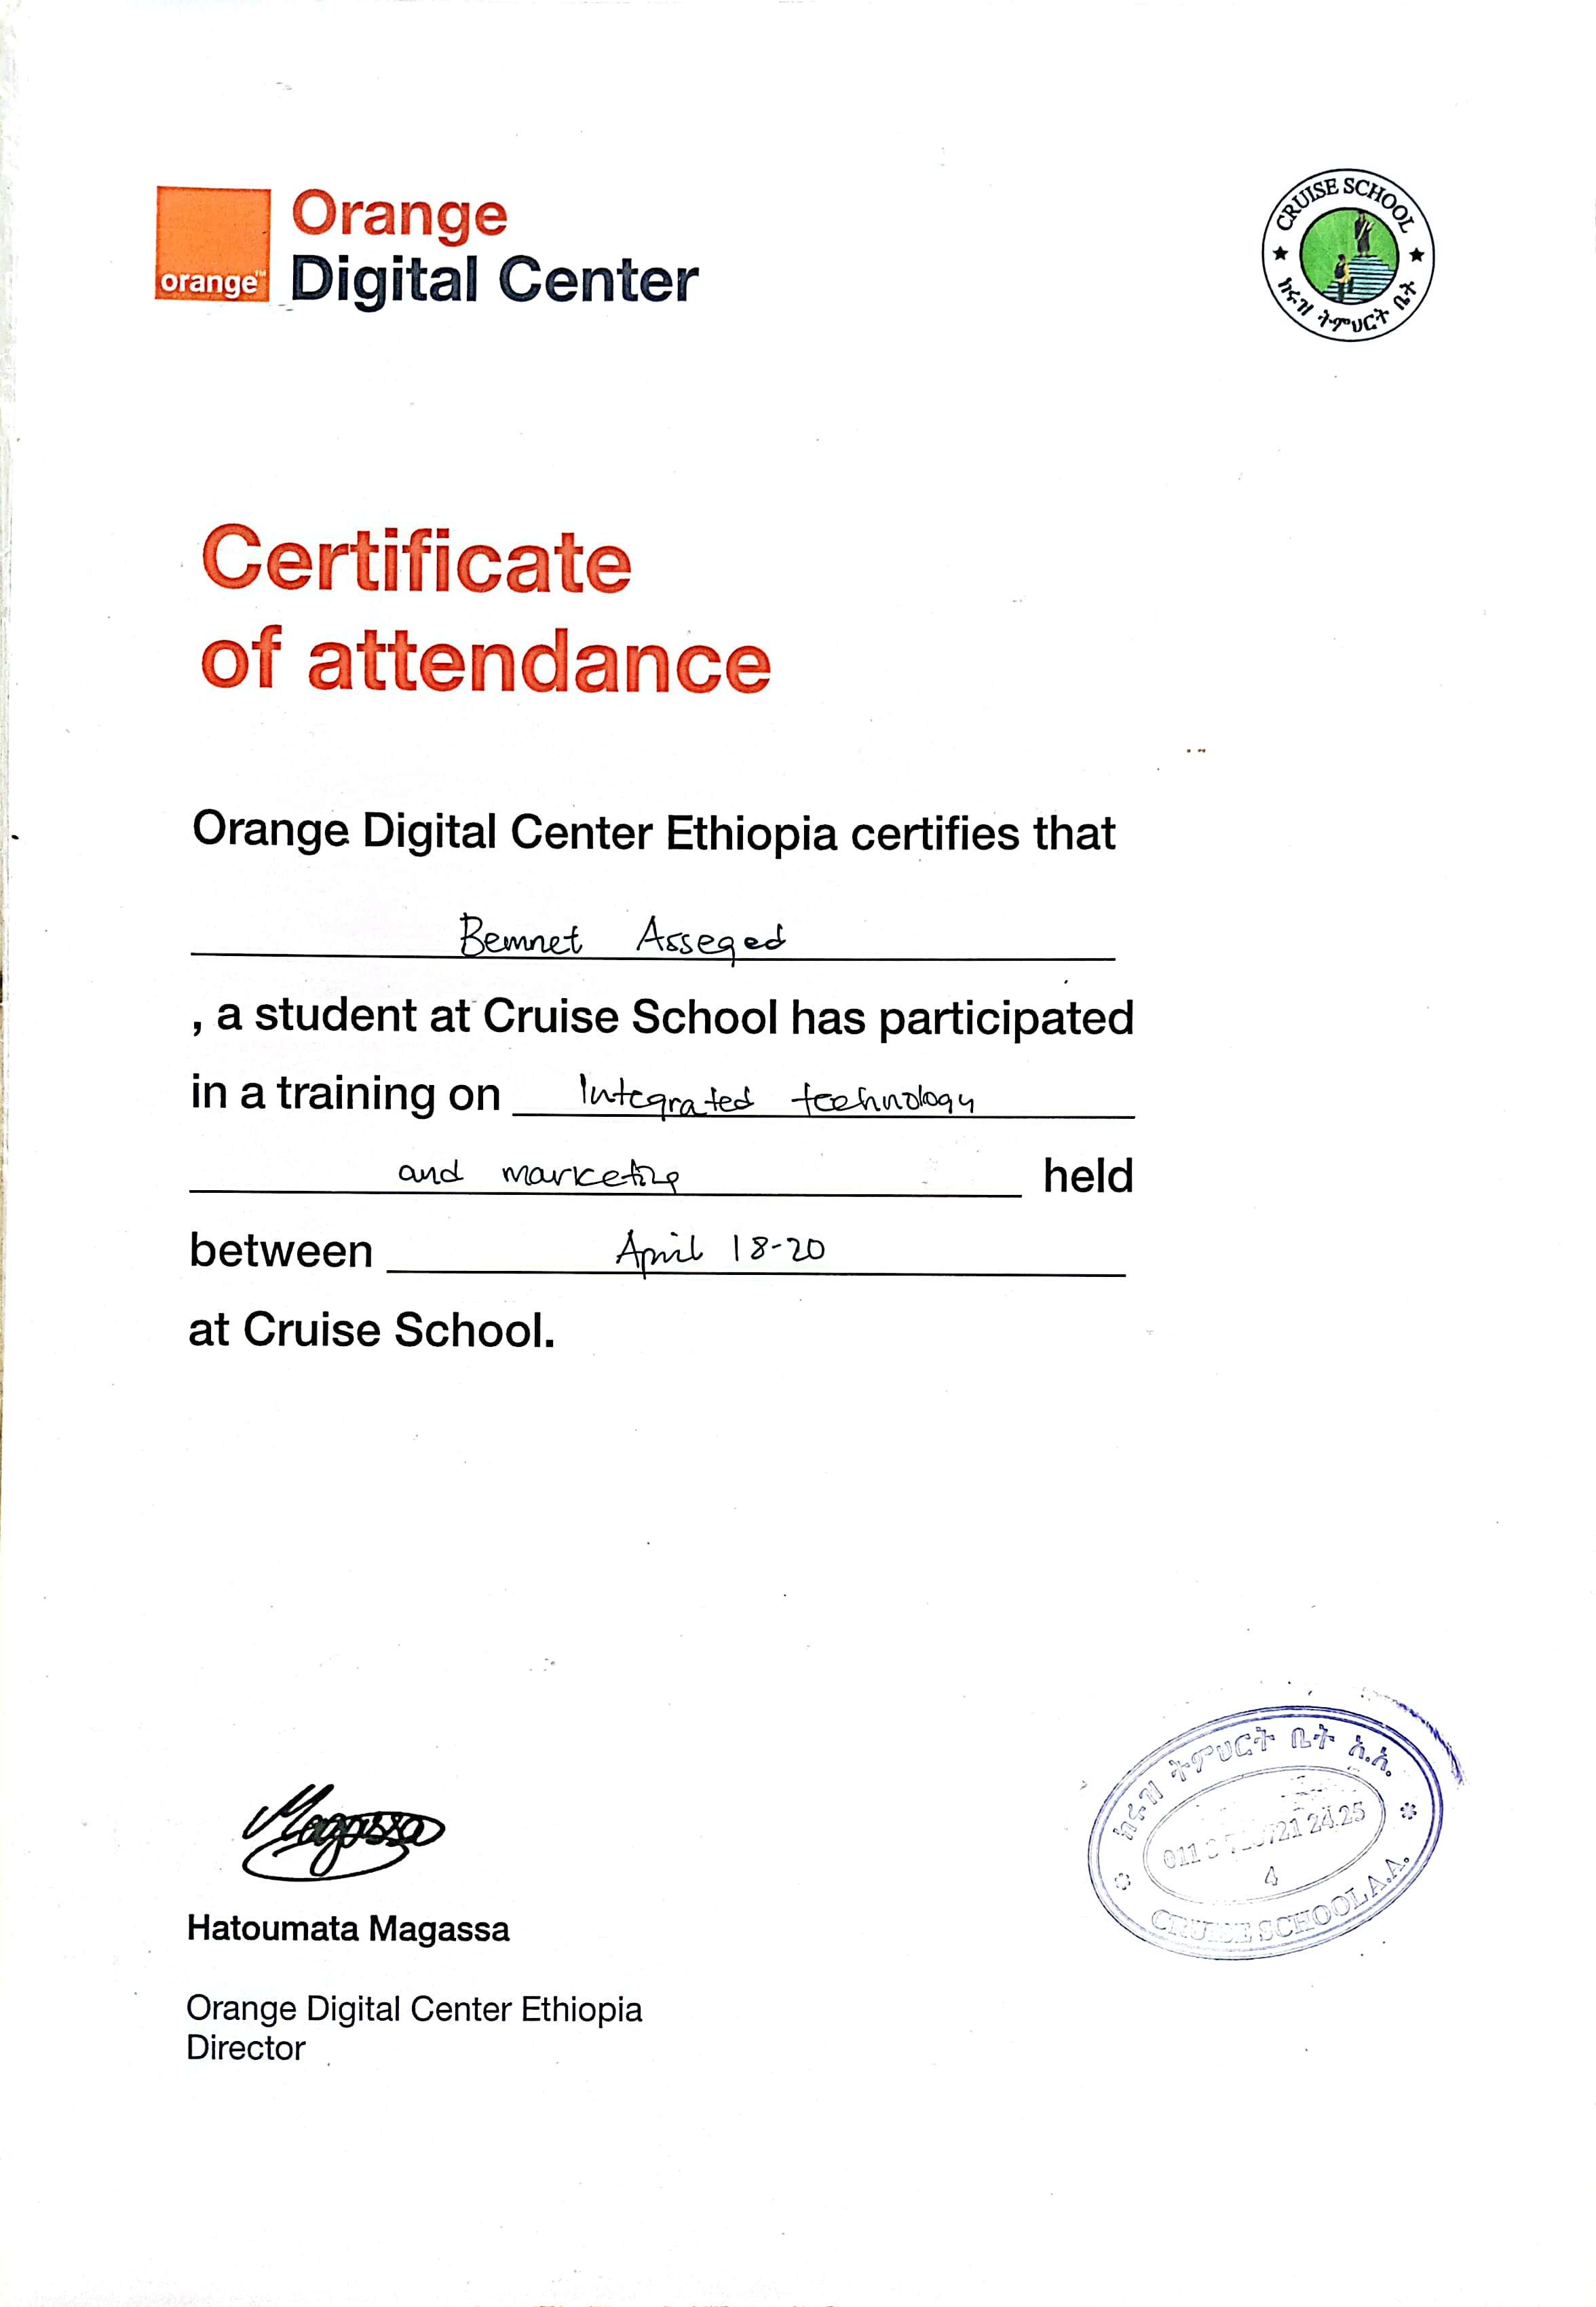 orange™
Orange
Digital Center
CRUISE SCHOOL
ክሩዝ ትምህርት ቤት
Certificate
of attendance
Orange Digital Center Ethiopia certifies that
Bemnet Asseged
, a student at Cruise School has participated
in a training on Integrated technology
and marketing held
between April 18-20
at Cruise School.
Magassa
Hatoumata Magassa
Orange Digital Center Ethiopia
Director
ክሩዝ ትምህርት ቤት አ.አ.
24 25
4
CRUISE SCHOOL A.A.